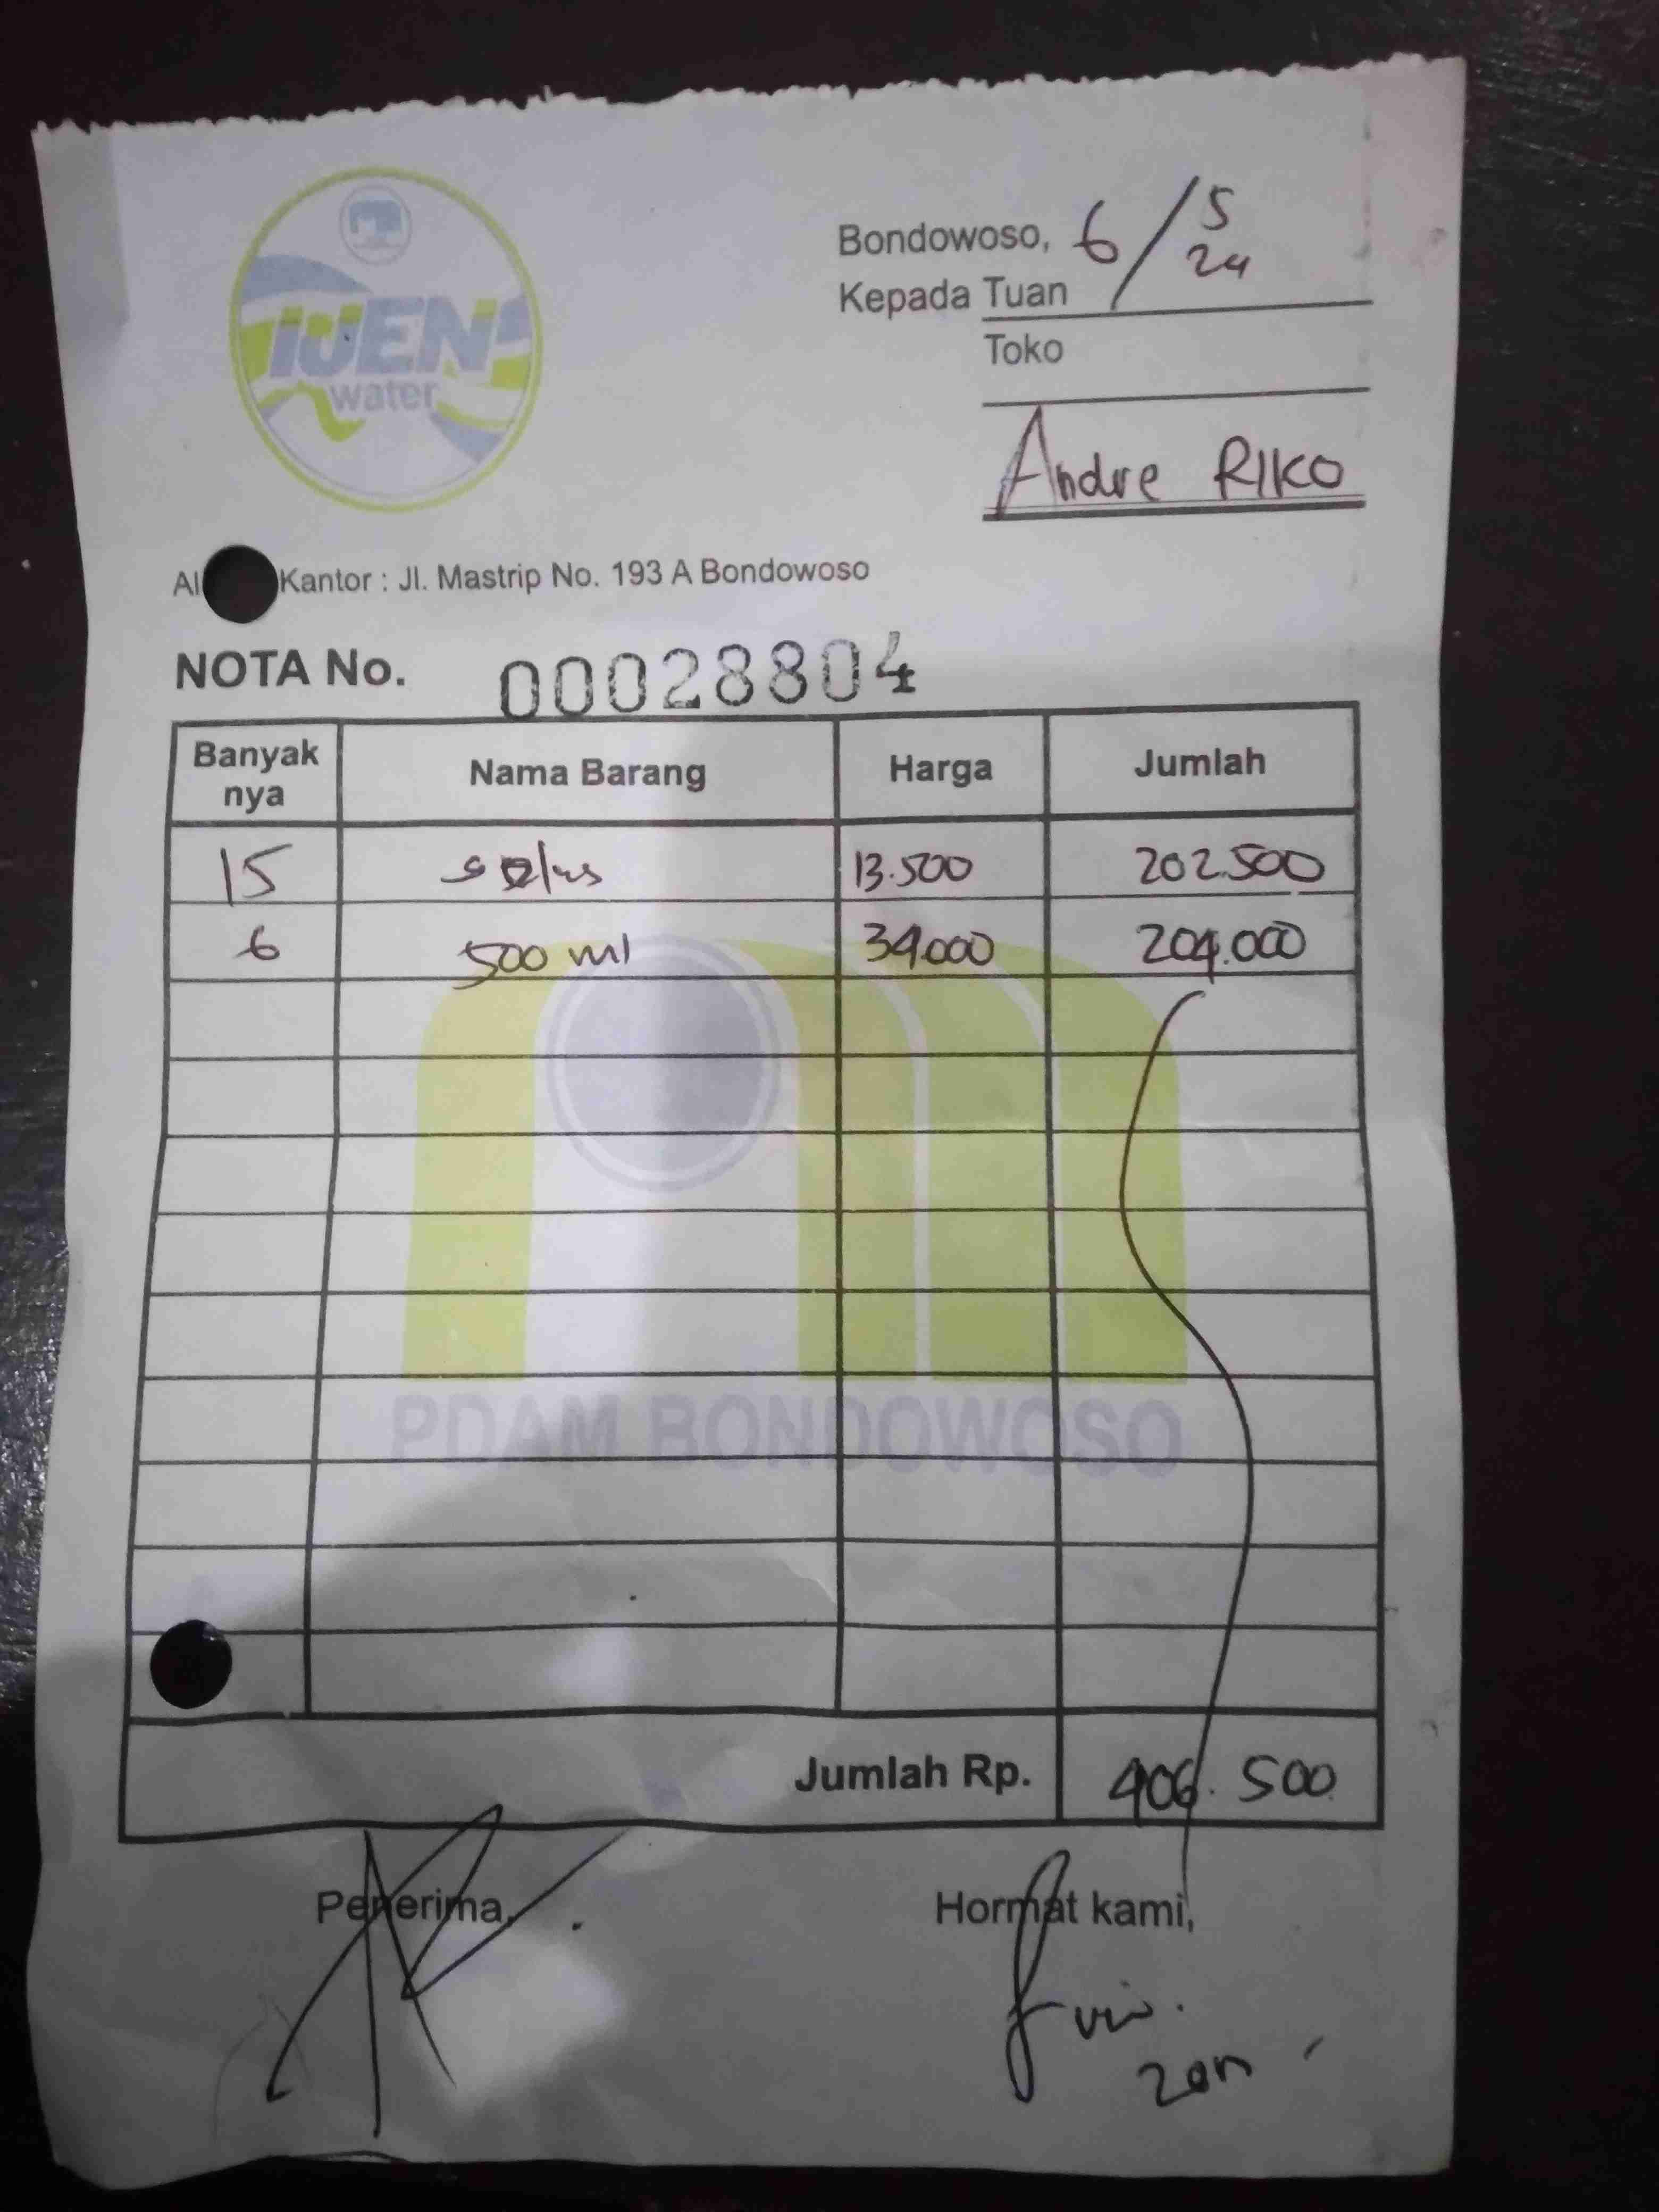 IJEN
water
Bondowoso, 6/5 24
Kepada Tuan
Toko
Andre RIKO
Al Kantor : Jl. Mastrip No. 193 A Bondowoso
NOTA No. 00028804
Banyak nya Nama Barang Harga Jumlah
15 13.500 202.500
6 500 ml 34.000 204.000
PDAM BONDOWOSO
Jumlah Rp. 406.500
Penerima, Hormat kami,